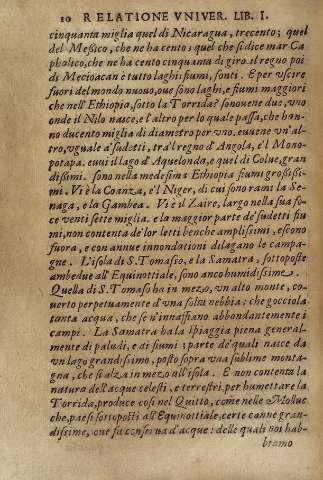 10 RELATIONE VNIVER. LIB. I.
cinquanta miglia quel di Nicaragua, trecento; quel
del Messico, che ne ha cento; quel che si dice mar Ca
pholico, che ne ha cento cinquanta di giro. il regno poi
di Mecioacan è tutto laghi, fiumi, fonti. E per vscire
fuori del mondo nuouo, oue sono laghi, e fiumi maggiori
che nell'Ethiopia, sotto la Torrida? sonouene due, vno
onde il Nilo nasce, e l'altro per lo quale passa, che han-
no ducento miglia di diametro per vno. euuene vn'al-
tro, vguale a' sudetti, tra'l regno d'Angola, e'l Mono-
potapa. euui il lago d'Aquelonda, e quel di Colue, gran
dissimi. sono nella medesima Ethiopia fiumi grossissi-
mi. Vi è la Coanza, e'l Niger, di cui sono rami la Se-
naga, e la Gambea. Vi è il Zaire, largo nella sua fo-
ce venti sette miglia. e la maggior parte de' sudetti fiu
mi, non contenta de' lor letti benche amplissimi, escono
fuora, e con annue innondationi dilagano le campa-
gne. L'isola di S. Tomaso, e la Samatra, sottoposte
ambedue all'Equinottiale, sono anco humidissime.
Quella di S. Tomaso ha in mezo, vn alto monte, co-
uerto perpetuamente d'vna folta nebbia: che gocciola
tanta acqua, che se n'innaffiano abbondantemente i
campi. La Samatra ha la spiaggia piena general-
mente di paludi, e di fiumi; parte de' quali nasce da
vn lago grandissimo, posto sopra vna sublime monta-
gna, che si alza in mezo all'isola. E non contenta la
natura dell'acque celesti, e terrestri, per humettare la
Torrida, produce così nel Quitto, come nelle Molluc
che, paesi sottoposti all'Equinottiale, certe canne gran-
dissime, oue si conserua d'acque: delle quali noi hab-
biamo